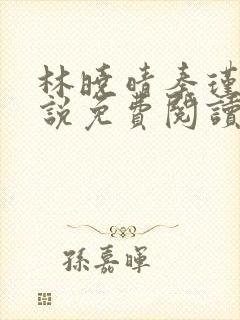 林曉晴秦瑾
說免費閱讀
孫嘉暉